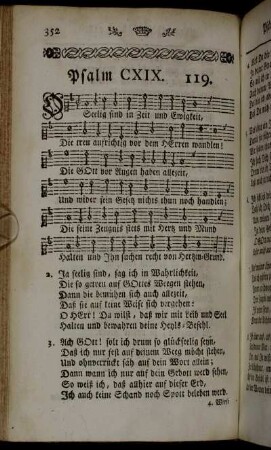 352
Psalm CXIX. 119.
O Seelig sind in Zeit und Ewigkeit,
Die treu aufrichtig vor dem HErren wandlen!
Die GOtt vor Augen haben allezeit,
Und wider sein Gesetz nichts thun noch handlen;
Die seine Zeugnis stets mit Hertz und Mund
Halten und Ihn suchen recht von Hertzen-Grund.
2. Ja seelig sind, sag ich in Wahrlichkeit,
Die so getreu auf GOttes Weegen stehen,
Dann die bemühen sich auch allezeit,
Daß sie auf keine Weise sich vergehen:
O HErr! Du wilst, daß wir mit Leib und Seel
Halten und bewahren deine Heyls-Befehl.
3. Ach GOtt! solt ich drum so glückseelig seyn,
Daß ich nur fest auf deinem Weeg möcht stehen,
Und ohnverrückt säh auf dein Wort allein;
Dann wann ich nur auf dein Gebott werd sehen,
So weiß ich, daß allhier auf dieser Erd,
Ich auch keine Schand noch Spott beleben werd.
4. Wirst